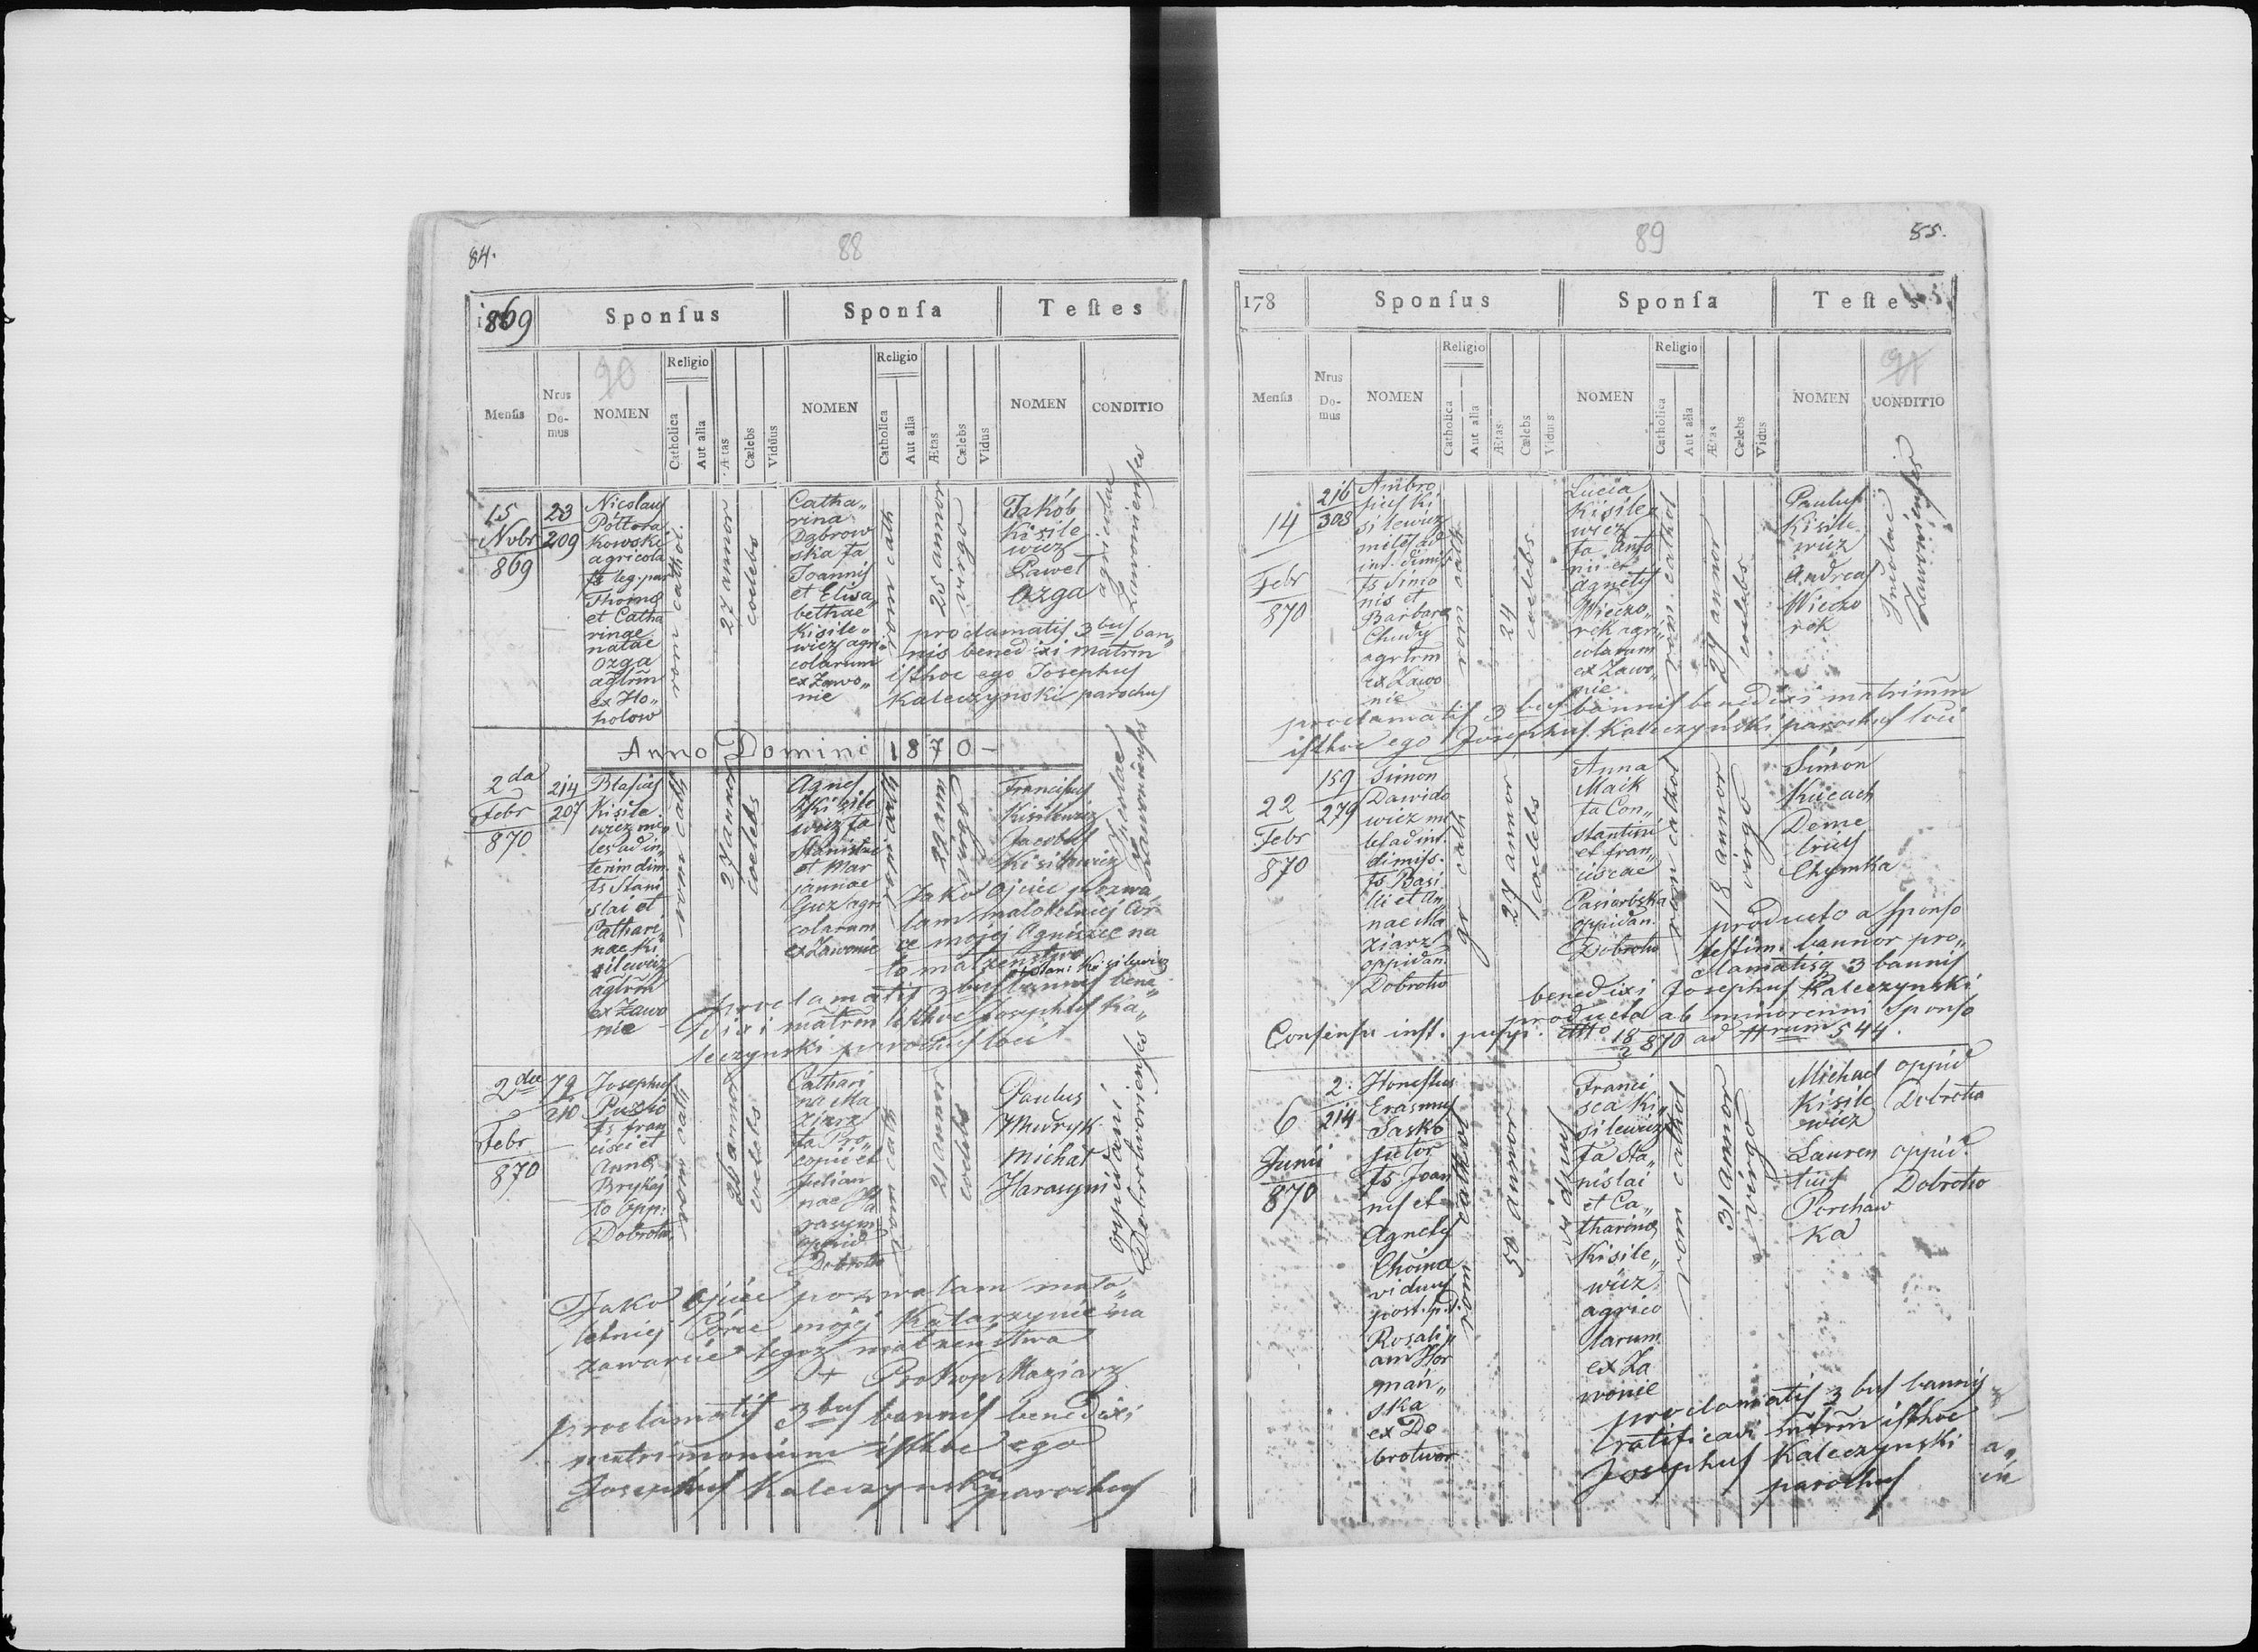 84.
88
1869
Sponſus
Sponſa
Teſtes
Menſis
Nrus Domus
NOMEN
90
Religio
Catholica
Aut alia
Ætas
Cælebs
Viduus
NOMEN
Religio
Catholica
Aut alia
Ætas
Cælebs
Vidus
NOMEN
CONDITIO
15
Nvbr
869
23
209
Nicolaus
Pottora
kowski
agricola
fs leg. par
Thoma
et Catha
rinae
natae
Ozga
agtrm
ex Ho„
holow
rom cathol.
27 annor
coelebs
Catha„
rina
Dąbrow
ska fa
Joannis
et Elisa„
bethae
Kisile„
wicz agri„
colarum
ex Zawo„
nie
rom cath
25 annor
virgo
Jakób
Kisile
wicz
Paweł
Ozga
agricolae
Zawonienses
proclamatis 3 bus ban„
nis benedixi matrm
isthoc ego Josephus
Kaleczynski parochus
Anno Domini 1870 -
2da
Febr
870
214
207
Blasius
Kisile
wicz mi„
les ad in„
terim dim.
fs Stani
slai et
Cathari
nae Ki
silewicz
agtrm
ex Zawo
nie
rom cath
27 annor
coelebs
Agnes
Kisile
wicz fa
Stanislai
et Mar
jannae
Guz agri
colarum
ex Zawonie
rom cath
22 ann
virgo
Franciscus
Kisilewicz
Jacobus
Kisilewicz
Zawonienses
Jako Ojciec pozwa„
lam małoletniej Cór
ce mojej Agniszce na
to małżeństwo
Stan: Kisilewicz
proclamatis 3 bus bannis bene„
dixi matrm isthoc Josephus Ka„
leczynski parochus loci
2da
Febr
870
79
210
Josephus
Puzio
fs fran
cisci et
Annae
Brykaj
to opp:
Dobrotw.
rom cath
26 annor
coelebs
Cathari
na Ma
ziarz
fa Pro„
copii et
Julian
nae Ha
rasym
oppid
Dobrotw
rom cath
21 annor
coelebs
Paulus
Mudryk
Michał
Harasym
oppidani
Dobrotworienses
Jako Ojciec pozwalam mało„
letniej Córce mojej Katarzynie na
zawarcie tegoż małżeństwa
+ Prokop Maziarz
proclamatis 3 bus bannis benedixi
matrimonium isthoc ego
Josephus Kaleczynski parochus
89
85.
178
Sponſus
Sponſa
Teſtes
Menſis
Nrus Domus
NOMEN
Religio
Catholica
Aut alia
Ætas
Cælebs
Vidus
NOMEN
Religio
Catholica
Aut alia
Ætas
Cælebs
Vidus
NOMEN
91
CONDITIO
14
Febr
870
216
308
Ambro
sius Ki
silewicz
miles ad
int. dimis
fs Simo
nis et
Barbara
Chudy
agrtrm
ex Zawo
nie
rom cath
24
coelebs
Lucia
Kisile„
wicz
fa Anto
nii et
Agnetis
Wieczo„
rek agri„
colarum
ex Zawo„
nie
rom. cathol
27 annor
coelebs
Paulus
Kisile
wicz
Andreas
Wieczo
rek
Inolae
Zawonienses
proclamatis 3 bus bannis benedixi matrimm
isthoc ego Josephus Kaleczyński parochus loci
22
Febr
870
159
279
Simon
Dawido
wicz mi
les ad int.
dimiss.
fs Basi
lii et An„
nae Ma
ziarz
oppidan.
Dobrotw
gr cath
27 annor
coelebs
Anna
Maik
fa Con„
stantini
et fran„
ciscae
Pasiorbska
oppidan.
Dobrotw
rom cathol
18 annor
virgo
Simon
Kucach
Deme
trius
Chymka
producto a sponso
testim. bannor pro„
clamatisq 3 bannis
benedixi Josephus Kaleczynski
producta ab minorenni Sponso
Consensu inst. pupp. dtto 18/2 870 ad Nrum 544.
6
Junii
870
2.
214
Honestus
Erasmus
Sasko
sutor
fs Joan
nis et
Agnetis
Choina
viduus
post. p. d.
Rosali„
am Hor
mań„
ska
ex Do
brotwor
rom cathol
50 annor
viduus
Franci
sca Ki„
silewicz
fa Sta„
nislai
et Ca„
tharina
Kisile„
wicz
agrico
larum
ex Za
wonie
rom cathol
31 annor
virgo
Michael
Kisile
wicz
oppid
Dobrotw
Lauren
tius
Porchaw
ka
oppid.
Dobrotw
proclamatis 3 bus bannis
ratificavi mtrm isthoc
Josephus Kaleczynski
parochus